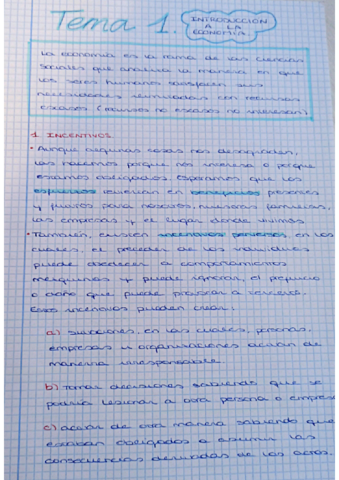 Tema 1. INTRODUCCIÓN
A LA
ECONOMÍA.
La economía es la rama de las ciencias
sociales que analiza la manera en que
los seres humanos satisfacen sus
necesidades ilimitadas con recursos
escasos (recursos no escasos no interesan)
1. INCENTIVOS
• Aunque algunas cosas nos desagradan,
las hacemos porque nos interesa o porque
estamos obligados. Esperamos que los
esfuerzos reviertan en beneficios presentes
y futuros para nosotros, nuestras familias,
las empresas y el lugar donde vivimos
• También, existen incentivos perversos, en los
cuales, el proceder de los individuos
puede obedecer a comportamientos
mezquinos y puede ignorar, el perjuicio
o daño que puede provocar a terceros.
Estos incentivos pueden crear:
a) situaciones, en las cuales, personas,
empresas u organizaciones actúan de
manera irresponsable.
b) tomar decisiones sabiendo que se
podría lesionar a otra persona o empresa
c) actuar de otra manera sabiendo que
estaban obligados a asumir las
consecuencias derivadas de los actos.